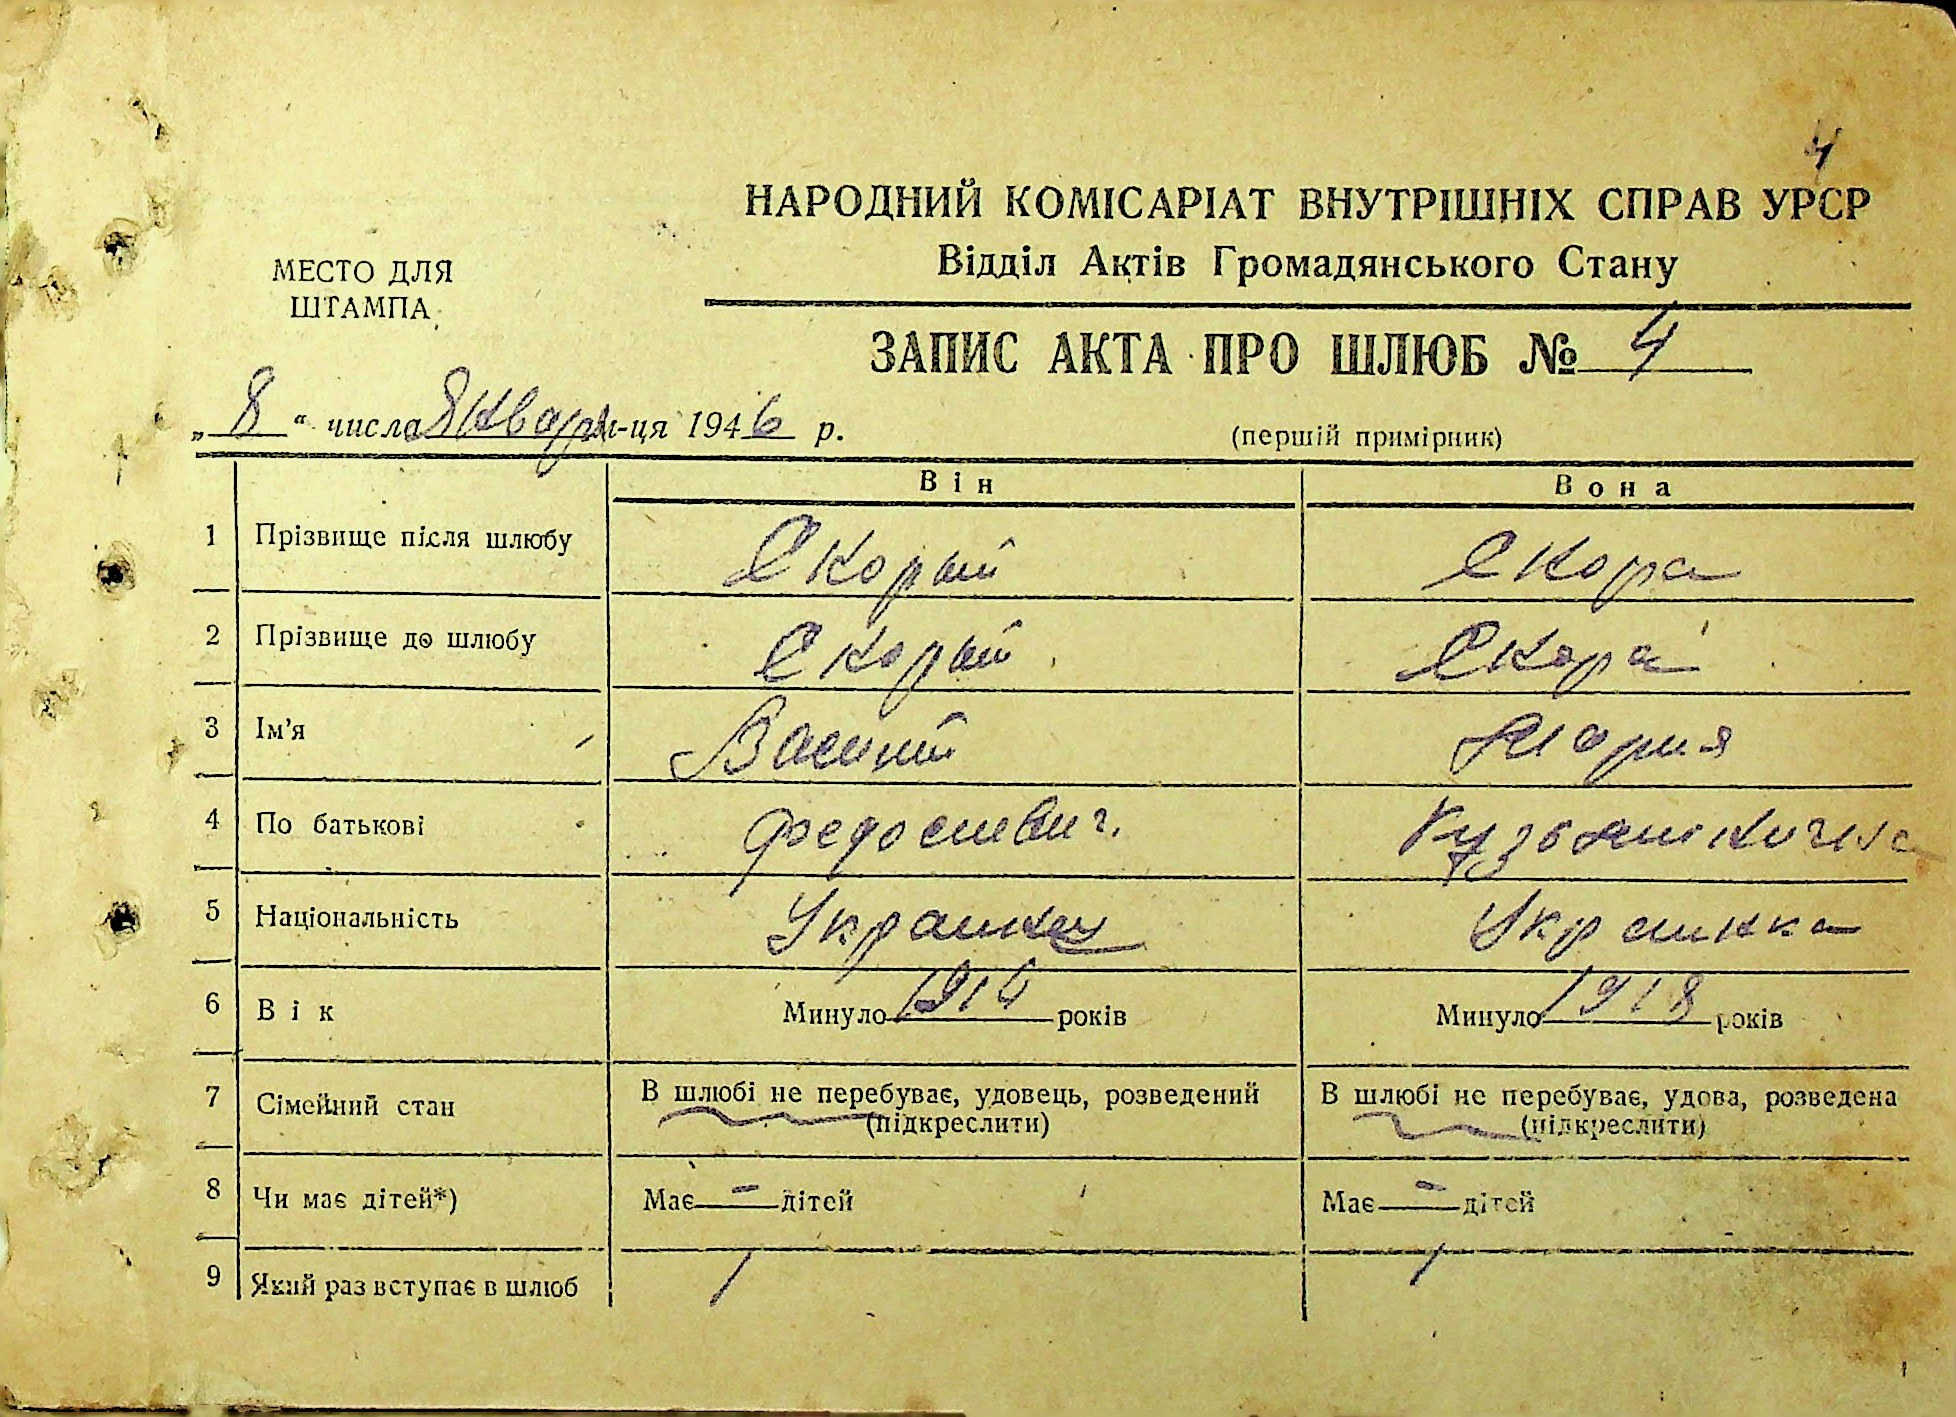 4
НАРОДНИЙ КОМІСАРІАТ ВНУТРІШНІХ СПРАВ УРСР
Відділ Актів Громадянського Стану
МЕСТО ДЛЯ
ШТАМПА
ЗАПИС АКТА ПРО ШЛЮБ № 4
„8“ числа Января м-ця 1946 р.
(перший примірник)
Він Вона
1 Прізвище після шлюбу Скорый Скора
2 Прізвище до шлюбу Скорый Скора
3 Ім'я Василий Мария
4 По батькові Федосиевич.
5 Національність Украинец Украинка
6 Вік Минуло 1914 років Минуло 1918 років
7 Сімейний стан В шлюбі не перебуває, удовець, розведений В шлюбі не перебуває, удова, розведена
(підкреслити) (підкреслити)
8 Чи має дітей*) Має — дітей Має — дітей
9 Який раз вступає в шлюб 1 1